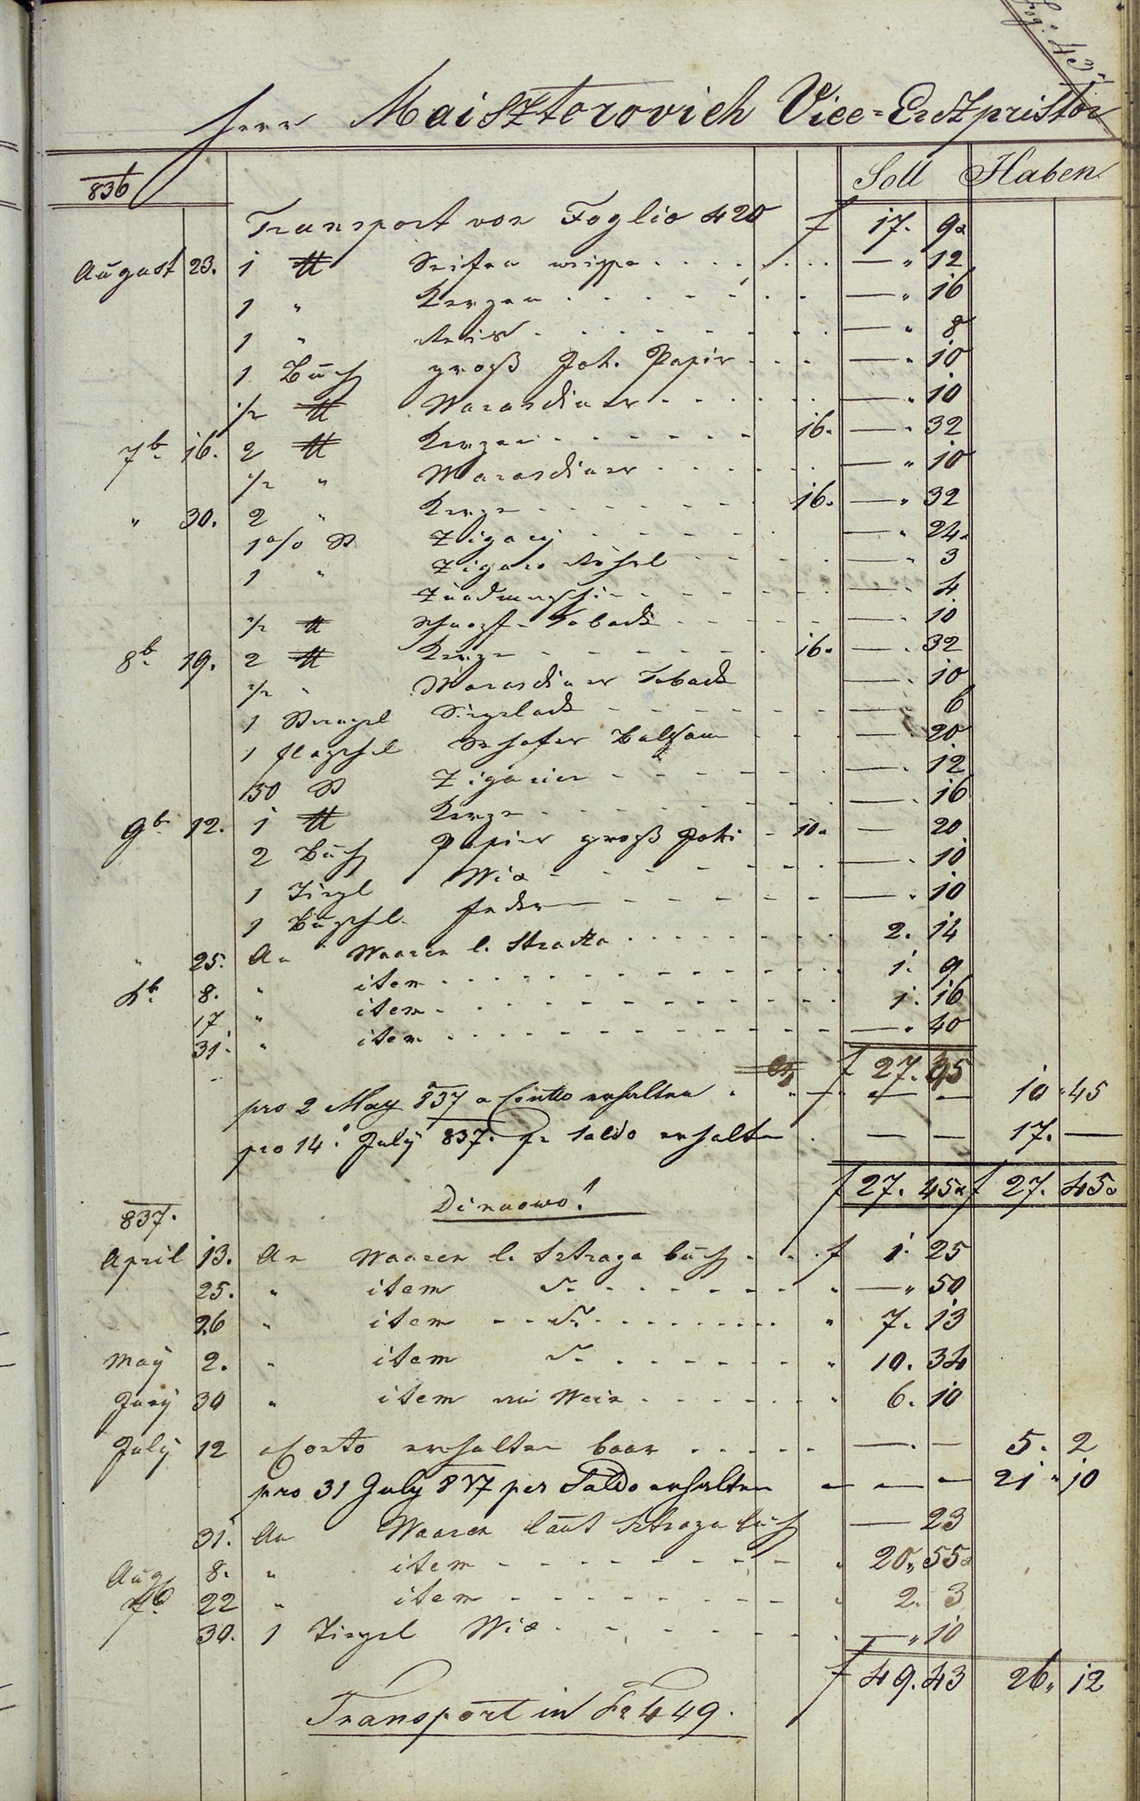 Fog: 437
Herr Maisztorovich Vice=Erdzpristor
836 Soll Haben
Transport von Foglio 420 f 17. 9
August 23. 1 ℔ Seifen weisse — " 12
1 " Kerzen — " 16
1 " Reis — " 8
1 Buch groß Joh. Papir — " 10
1/2 ℔ Warasdiner — " 10
7b. 16. 2 ℔ Kerzen 16. — " 32
1/2 " Warasdiner — " 10
" 30. 2 " Kerze 16. — " 32
St Zigarij — " 24
1 " Zigaro Röhrl — " 3
Zündmaschi — " 4
1/2 ℔ Schnopf-Taback — " 10
8b. 19. 2 ℔ Kerze 16. — " 32
1/2 " Warasdiner Taback — " 10
1 Stangel Sigelack — " 6
1 flaschel Balsam — " 20
St Zigarien — " 12
9b. 12. 1 ℔ Kerze — " 16
2 Buch Papier groß Joh: 10 — 20
1 Tiegl Wix — " 10
1 Büschl. Federn — " 10
" 25. An Waaren l. Strazza 2. 14
Xb. 8. " item 1. 9
17 " item 1. 16
31. " item — " 40
f 27. 45
pro 2 May 837 a Contto erhalten — — 10 " 45
pro 14. July 837. pr Saldo erhalten — — 17. —
f 27. 45 f 27. 45
837. Dinuovo!
April 13. An Waaren l. Sztraza buch f 1. 25
25. " item — " 50
26 " item 7. 13
May 2. " item 10. 34
Juny 30 " item 6. 10
July 12 a Conto erhalten baar — — 5. 2
pro 31 July 837 per Saldo erhalten — — — 21 " 10
31. An Waaren laut Sztraza buch — 23
Aug 8. " item 20. 55
7b. 22 " item 2. 3
30. 1 Tiegel Wix — " 10
f 49. 43 26. 12
Transport in Fo 449.